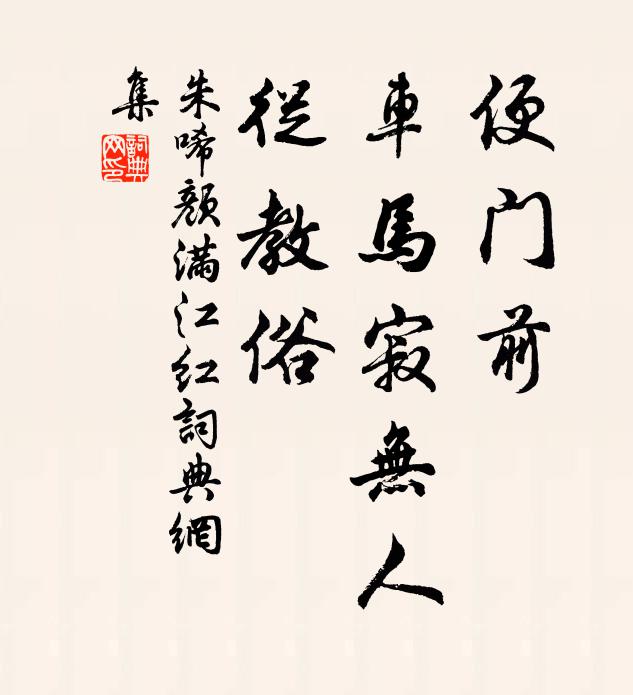 便門前
車馬寂無人
從教俗
朱唏顏滿江紅詞典網
集
詞典網印